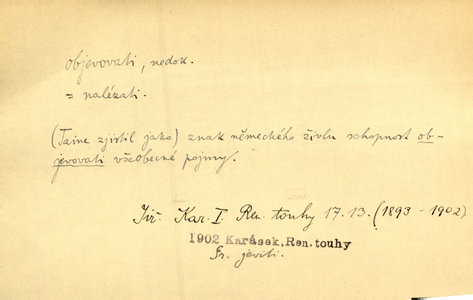 objevovati, nedok.
= nalézati.
(Taine zjistil jako) znak německého živlu schopnost ob-
jevovati všeobecné pojmy.
Jiř. Kar. I. Ren. touhy 17.13. (1893-1902)
1902 Karásek, Ren.touhy
jeviti.